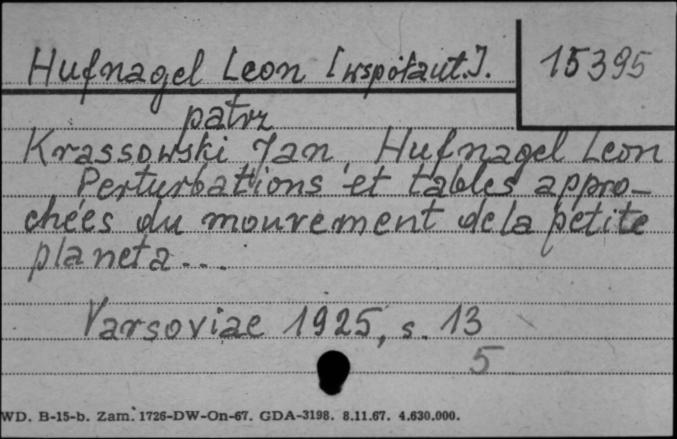 Hufnagel Leon [współaut.].
15395
patrz
Krassowski Jan, Hufnagel Leon
Perturbations et tables appro-
cheés du mouvement de la petite
planeta...
Varsoviae 1925, s. 13
5
WD. B-15-b. Zam. 1726-DW-On-67. GDA-3198. 8.11.67. 4.630.000.